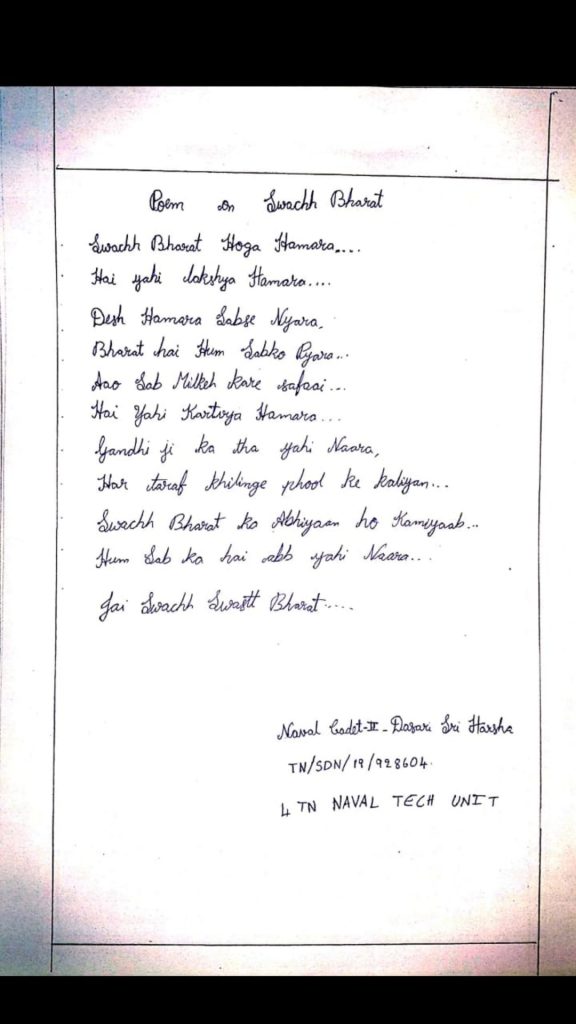 Poem on Swachh Bharat
Swachh Bharat Hoga Hamara....
Hai yahi lakshya Hamara....
Desh Hamara Sabse Nyara,
Bharat hai Hum Sabko Pyara...
Aao Sab Milkeh kare safaai...
Hai Yahi Kartvya Hamara...
Gandhi ji ka tha yahi Naara,
Har taraf khilinge phool ke kaliyan...
Swachh Bharat ko Abhiyaan ho Kamiyaab...
Hum Sab ka hai abb yahi Naara...
Jai Swachh Swastt Bharat.....
Naval Cadet-II-Dasari Sri Harsha
TN/SDN/19/928604.
4 TN NAVAL TECH UNIT